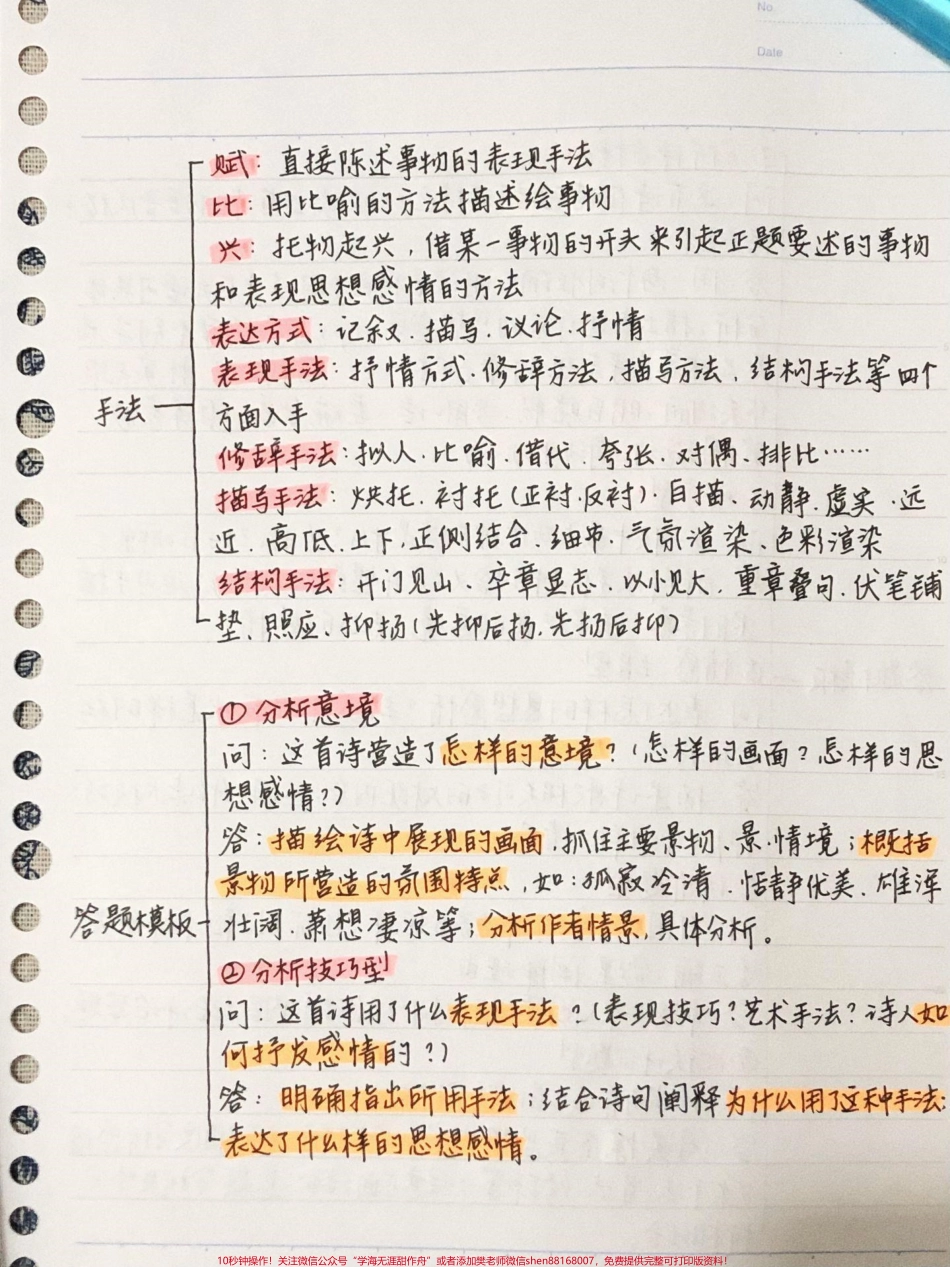 No
Date
赋：直接陈述事物的表现手法
比：用比喻的方法描述绘事物
兴：托物起兴，借某一事物的开头来引起正题要述的事物
和表现思想感情的方法
表达方式：记叙、描写、议论、抒情
表现手法：抒情方式、修辞方法，描写方法、结构手法等四个
手法
方面入手
修辞手法：拟人、比喻、借代、夸张、对偶、排比……
描写手法：烘托、衬托(正衬、反衬)、白描、动静、虚实、远
近、高低、上下、正侧结合、细节、气氛渲染、色彩渲染
结构手法：开门见山、卒章显志、以小见大、重章叠句、伏笔铺
垫、照应、抑扬(先抑后扬、先扬后抑)
①分析意境
问：这首诗营造了怎样的意境？(怎样的画面？怎样的思
想感情？)
答：描绘诗中展现的画面，抓住主要景物、景、情境；概括
景物所营造的氛围特点，如：孤寂冷清、恬静优美、雄浑
答题模板
壮阔、萧想凄凉等；分析作者情景，具体分析。
②分析技巧型
问：这首诗用了什么表现手法？(表现技巧？艺术手法？诗人如
何抒发感情的？)
答：明确指出所用手法；结合诗句阐释为什么用了这种手法：
表达了什么样的思想感情。
10秒钟操作！关注微信公众号“学海无涯甜作舟”或者添加樊老师微信shen88168007，免费提供完整可打印版资料！